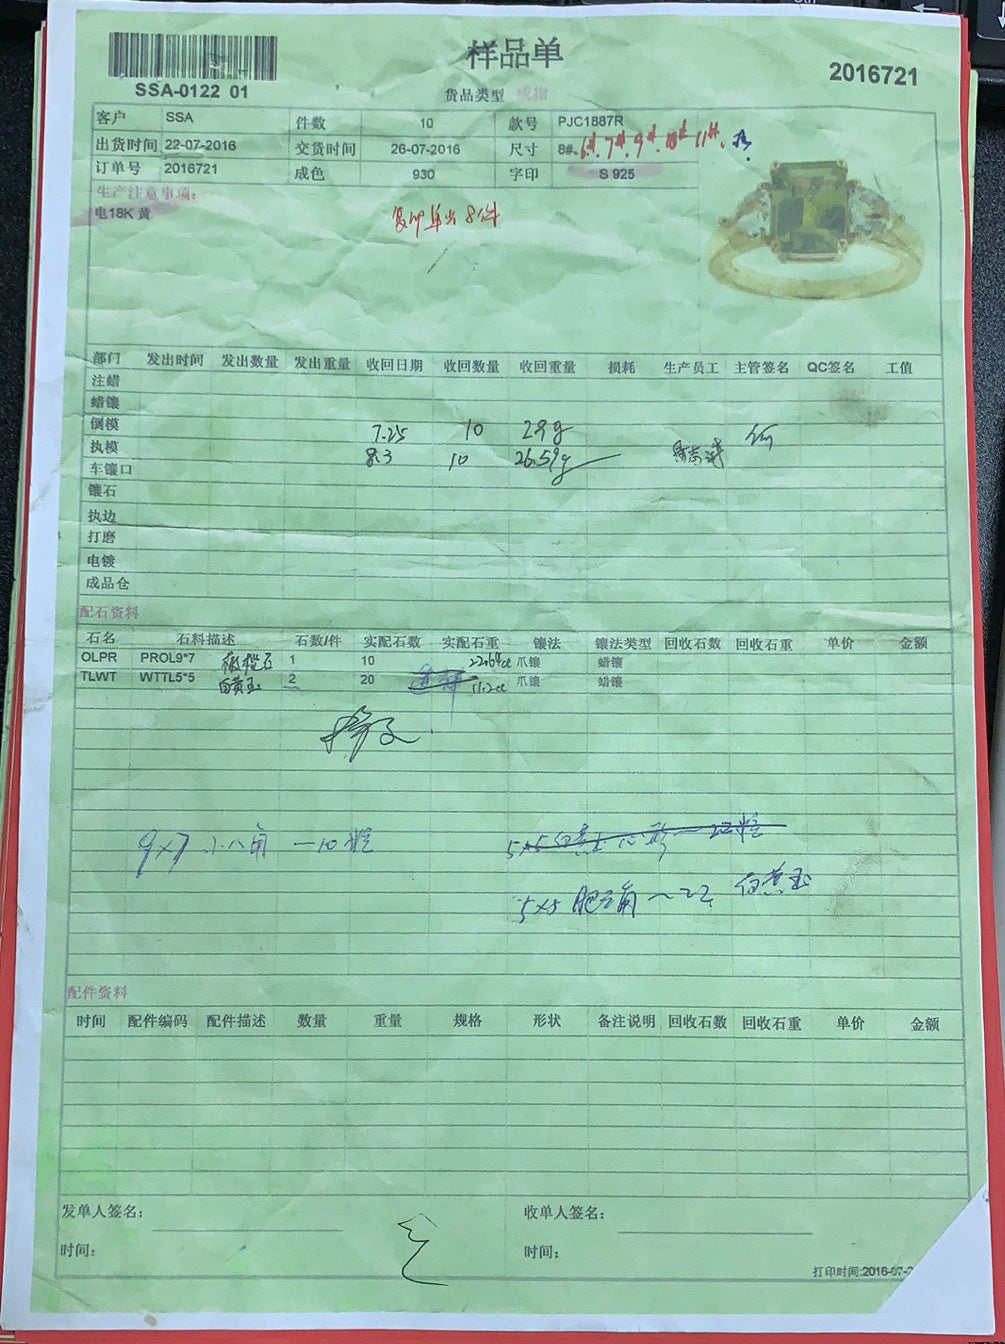 样品单
SSA-0122 01
2016721
货品类型 戒指
客户 SSA 件数 10 款号 PJC1887R
出货时间 22-07-2016 交货时间 26-07-2016 尺寸 8#. 6#. 7#. 9#. 10# 11#.
订单号 2016721 成色 930 字印 S 925
生产注意事项:
电18K 黄
复印单出8件
部门 发出时间 发出数量 发出重量 收回日期 收回数量 收回重量 损耗 生产员工 主管签名 QC签名 工值
注蜡
蜡镶
倒模 7.25 10 29g
执模 8.3 10 26.59g
车镶口
镶石
执边
打磨
电镀
成品仓
配石资料
石名 石料描述 石数/件 实配石数 实配石重 镶法 镶法类型 回收石数 回收石重 单价 金额
OLPR PROL9*7 橄榄石 1 10 22.64ct 爪镶 蜡镶
TLWT WTTL5*5 白黄玉 2 20 11.2ct 爪镶 蜡镶
9×7 小八角 一10粒
5×5 白黄玉 心形 一 22粒
5×5 肥三角 ~22 白黄玉
配件资料
时间 配件编码 配件描述 数量 重量 规格 形状 备注说明 回收石数 回收石重 单价 金额
发单人签名: 收单人签名:
时间: 时间:
打印时间:2016-07-2